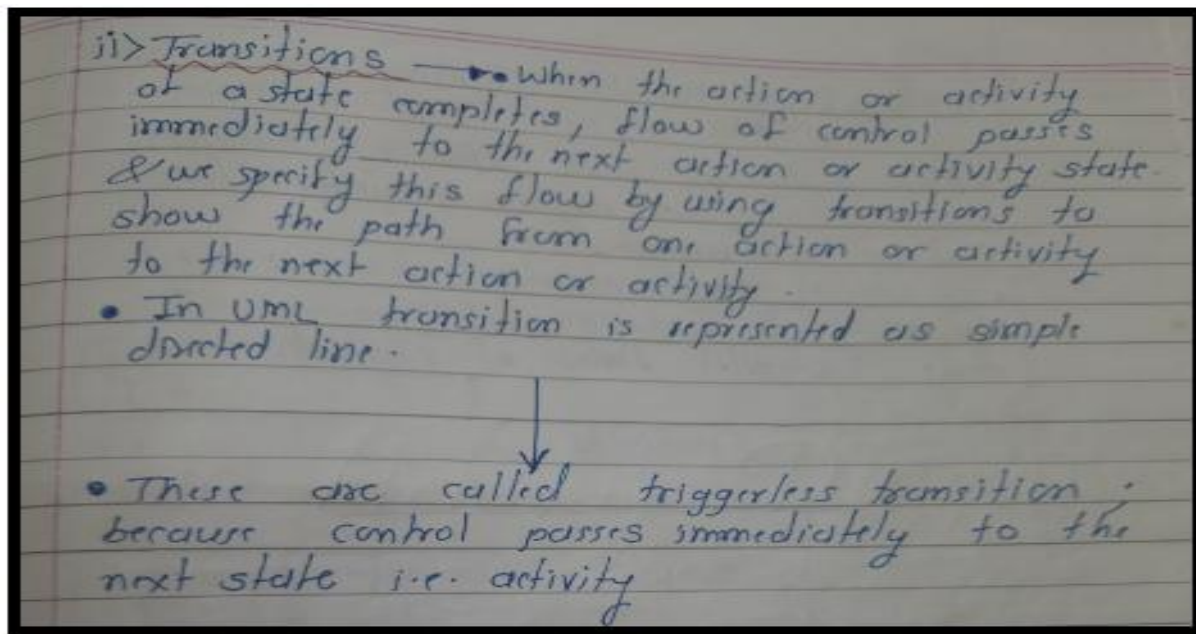 ii> Transitions → • When the action or activity
of a state completes, flow of control passes
immediately to the next action or activity state.
& we specify this flow by using transitions to
show the path from one action or activity
to the next action or activity.
• In UML transition is represented as simple
directed line.
• These are called triggerless transition,
because control passes immediately to the
next state i.e. activity